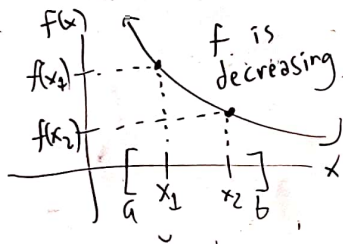 f(x)
f is
decreasing
f(x₁)
f(x₂)
[ ]
a x₁ x₂ b x